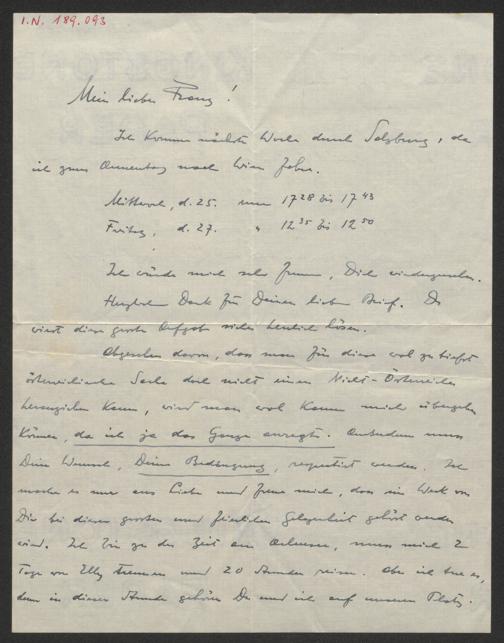 I.N. 189.093
Mein lieber Franz!
Ich komme nächste Woche durch Salzburg, da
ich zum Annentag nach Wien fahre.
Mittwoch, d. 25. um 17 28 bis 17 43
Freitag, d. 27. " 12 35 bis 12 50
Ich würde mich sehr freuen, Dich wiederzusehen.
Herzlichen Dank für Deinen lieben Brief. Du
wirst diese große Aufgabe sicher herrlich lösen.
Abgesehen davon, dass man für diese wol zutiefst
österreichische Sache doch nicht einen Nicht-Österreicher
heranziehen kann, wird man wol kaum mich übergehen
können, da ich ja das Ganze anregte. Ausserdem muss
Dein Wunsch, Deine Bedingung, respektiert werden. Ich
mache es nur aus Liebe und freue mich, dass ein Werk von
Dir bei dieser grossen und feierlichen Gelegenheit gehört werden
wird. Ich bin zu der Zeit am, muss mich 2
Tage von Elly trennen und 20 Stunden reisen. Aber ich tue es,
denn in dieser Stunde gehören Du und ich auf unseren Platz.